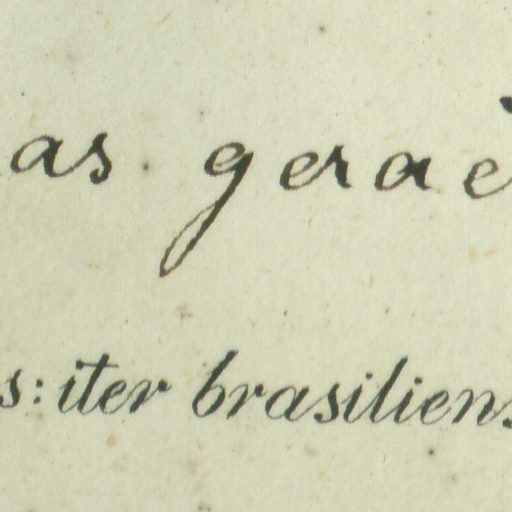 as geraè
s: iter brasiliens